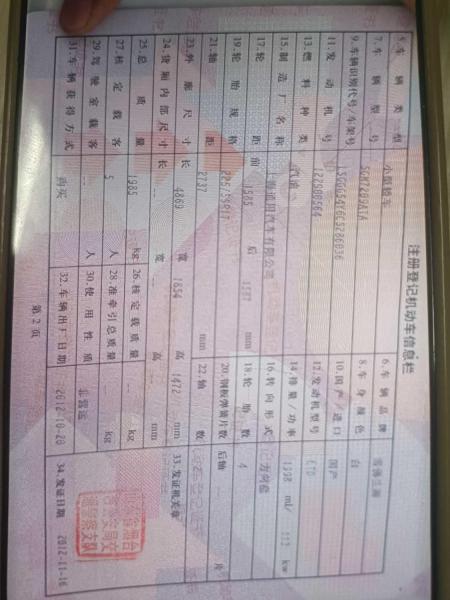 注册登记机动车信息栏
5.车辆类型 小型轿车 6.车辆品牌 雪佛兰牌
7.车辆型号 SGM7209ATA 8.车身颜色 白
9.车辆识别代号/车架号 10.国产/进口 国产
11.发动机号 12.发动机型号 LTD
13.燃料种类 汽油 14.排量/功率 1998 ml/ kw
15.制造厂名称 上海通用汽车有限公司 16.转向形式 方向盘
17.轮距 前 1585 后 1587 mm 18.轮胎数 4
19.轮胎规格 225/55R17 20.钢板弹簧片数 后轴 -- 片
21.轴距 2737 mm 22.轴数
23.外廓尺寸 长 4869 宽 1854 高 1472 mm 33.发证机关章
24.货厢内部尺寸 长 -- 宽 -- 高 -- mm
25.总质量 1985 kg 26.核定载质量 -- kg
27.核定载客 5 人 28.准牵引总质量 -- kg
29.驾驶室载客 -- 人 30.使用性质 非营运
31.车辆获得方式 购买 32.车辆出厂日期 2012-10-20 34.发证日期 2012-11-16
第2页